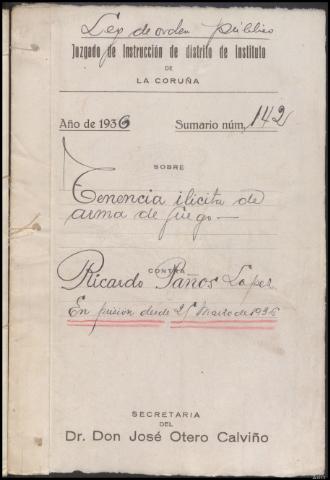 Ley de orden público
Juzgado de Instrucción de distrito de Instituto
DE
LA CORUÑA
Año de 1936 Sumario núm. 142
SOBRE
Tenencia ilicita de
arma de fuego
CONTRA
Ricardo Paños Lopez
En prisión desde 25 Marzo de 1936
SECRETARIA
DEL
Dr. Don José Otero Calviño